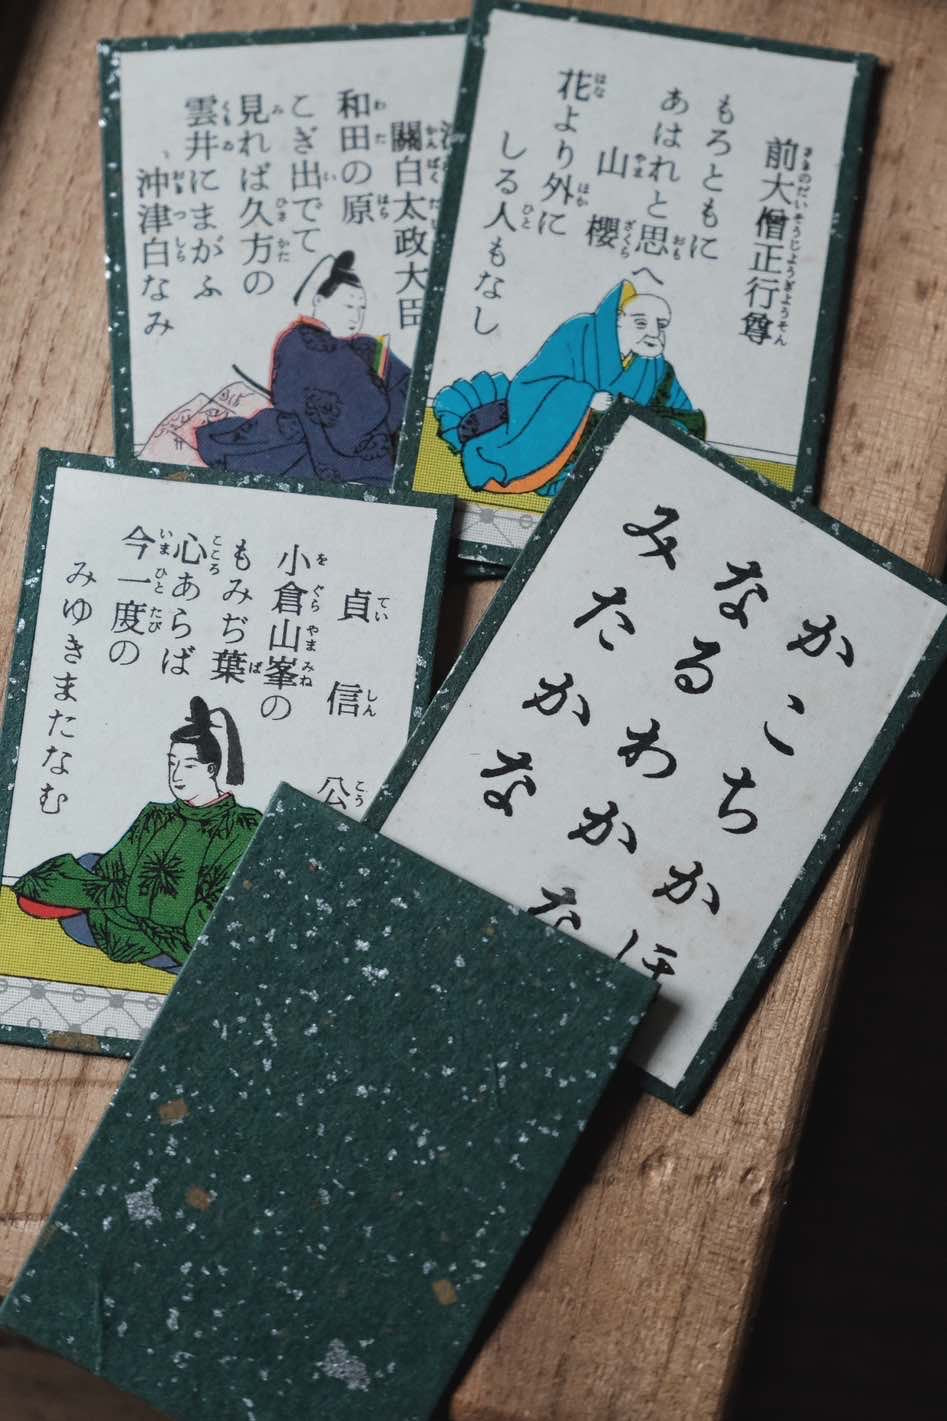 關白太政大臣
和田の原
こぎ出でて
見れば久方の
雲井にまがふ
沖津白なみ
前大僧正行尊
もろともに
あはれと思へ
山櫻
花より外に
しる人もなし
貞信公
小倉山峯の
もみぢ葉
心あらば
今一度の
みゆきまたなむ
かこちかほ
なるわかな
みたかな